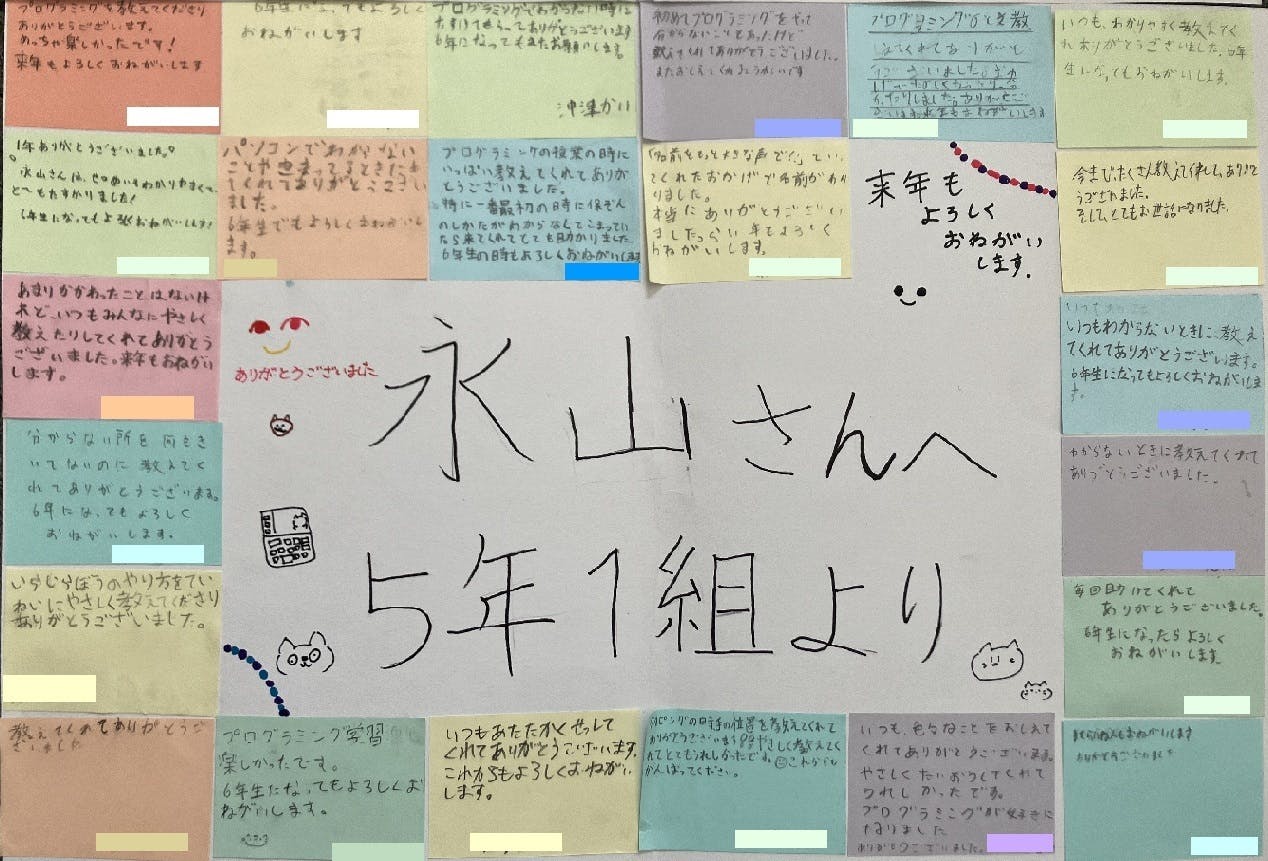 プログラミングを教えてくださり
ありがとうございます。
めっちゃ楽しかったです!
来年もよろしくおねがいします
6年生になってもよろしく
おねがいします
プログラミングでわからない時に
たすけてもらってありがとうございます
6年になってもまたお願いします。
沖津かい
初めてプログラミングをやって
分からないことも
教えてくれてありがとうございました。
プログラミングのことを教
えてくれてありがと
うございました。
いつも、わかりやすく教えてく
れありがとうございました。6年
生になってもおねがいします。
1年ありがとうございました。
永山さんは、せつめいもわかりやすく
とてもたすかりました!
6年生になってもよろしくおねがいします!
パソコンでわからない
ことや困まってるときたすけ
てくれてありがとうござい
ました。
6年生でもよろしくおねがいし
ます。
プログラミングの授業の時に
いっぱい教えてくれてありが
とうございました。
特に一番最初の時に保ぞん
のしかたがわからなくてこまってい
たら来てくれてとても助かりました。
6年生の時もよろしくおねがいします
「名前をもっと大きな声で!」てい
てくれたおかげで名前がわか
りました。
本当にありがとうござい
ました。らい年もよろしく
おねがいします。
来年も
よろしく
おねがい
します。
今までたくさん教えてくれて、ありがと
うございました。
そして、とてもお世話になりました。
あまりかかわったことはないけ
れど、いつもみんなにやさしく
教えたりしてくれてありがとう
ございました。来年もおねがい
します。
ありがとうございました
永山さんへ
いつもわからないときに教え
てくれてありがとうございます。
6年生になってもよろしくおねがいしま
す。
分からない所を 何もき
いてないのに 教えてく
れてありがとうございます。
6年になってもよろしく
おねがいします。
わからないときに教えてくれて
ありがとうございました。
5年1組より
いらいらぼうのやり方をてい
ねいにやさしく教えてくださり
ありがとうございました。
毎回助けてくれて
ありがとうございました。
6年生になったらよろしく
おねがいします
教えてくれてありがとうご
ざいました
プログラミング学習
楽しかったです。
6年生になってもよろしくお
ねがいします。
いつもあたたかくせっして
くれてありがとうございます。
これからもよろしくおねがい
します。
タイピングの時手の位置を教えてくれて
ありがとうございます!やさしく教えてく
れてとてもうれしかったです。これからも
がんばってください。
いつも、色々なことをおしえて
くれてありがとうございます。
やさしくたいおうしてくれて
うれしかったです。
プログラミングが好きに
なりました
ありがとうございました。
らいねんもおねがいします
ありがとうございました